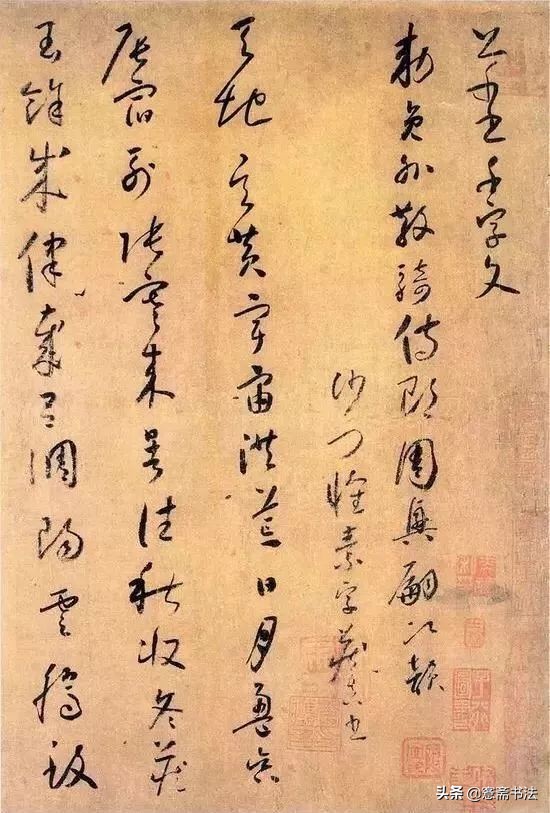 草書千字文
敕員外散騎侍郎周興嗣次韻
沙門懷素字藏真書
天地玄黃宇宙洪荒日月盈昃
辰宿列張寒來暑往秋收冬藏
閏餘成律歲呂調陽雲騰致
头条 @愙斋书法